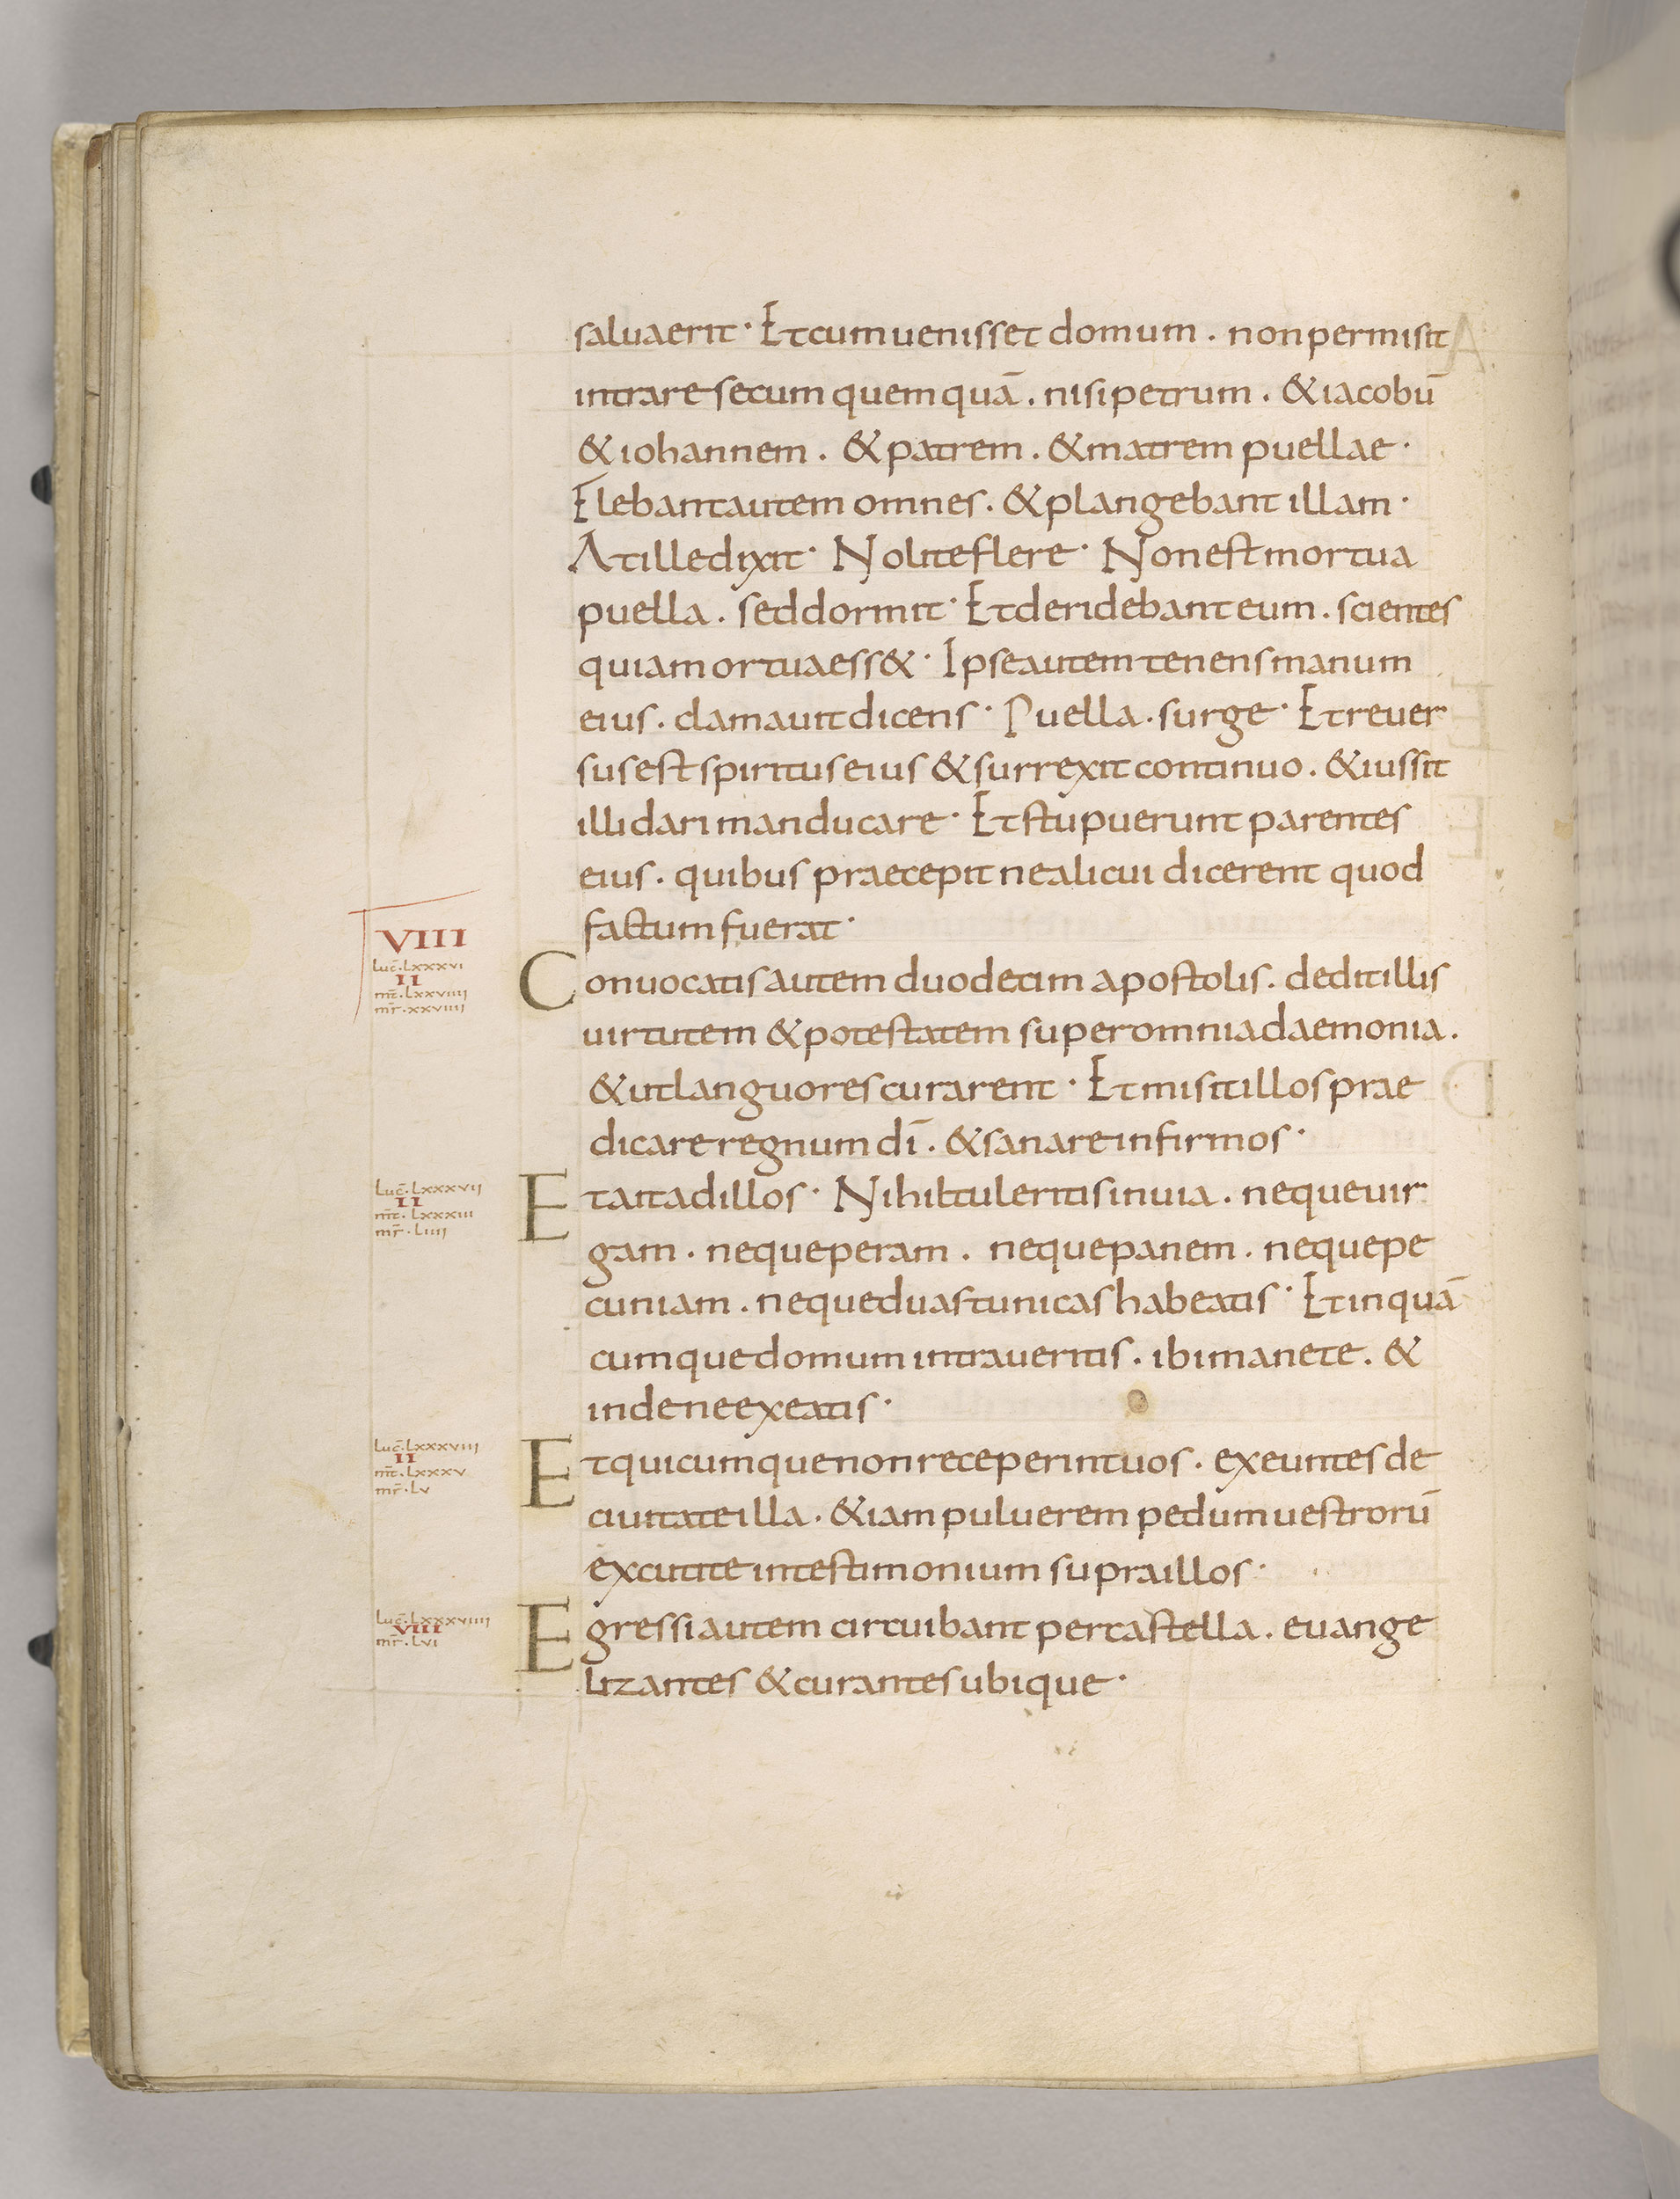 salua erit· Et cum uenisset domum . non permisit
intrare secum quemquā . nisi petrum . & iacobū
& iohannem . & patrem . & matrem puellae ·
Flebant autem omnes . & plangebant illam ·
At ille dixit · Nolite flere · Non est mortua
puella . sed dormit · Et deridebant eum . scientes
quia mortua ess& · Ipse autem tenens manum
eius . clamauit dicens · Puella . surge · Et reuer
sus est spiritus eius & surrexit continuo . & iussit
illi dari manducare · Et stupuerunt parentes
eius . quibus praecepit ne alicui dicerent quod
factum fuerat ·
VIII
Luc̄. Lxxxvi
II
mt̄. Lxxviiii
mr̄. xxviiii
Conuocatis autem duodecim apostolis . dedit illis
uirtutem & potestatem super omnia daemonia .
& ut languores curarent · Et misit illos prae
dicare regnum dī . & sanare infirmos ·
Luc̄. Lxxxvii
II
mt̄. Lxxxiii
mr̄. Liiii
Et ait ad illos · Nihil tuleritis in uia . neque uir
gam . neque peram . neque panem . neque pe
cuniam . neque duas tunicas habeatis · Et in quā
cumque domum intraueritis . ibi manete . &
inde ne exeatis ·
Luc̄. Lxxxviii
II
mt̄. Lxxxv
mr̄. Lv
Et quicumque non receperint uos . exeuntes de
ciuitate illa . & iam puluerem pedum uestrorū
excutite in testimonium supra illos ·
Luc̄. Lxxxviiii
VIII
mr̄. Lvi
Egressi autem circuibant per castella . euange
lizantes & curantes ubique ·